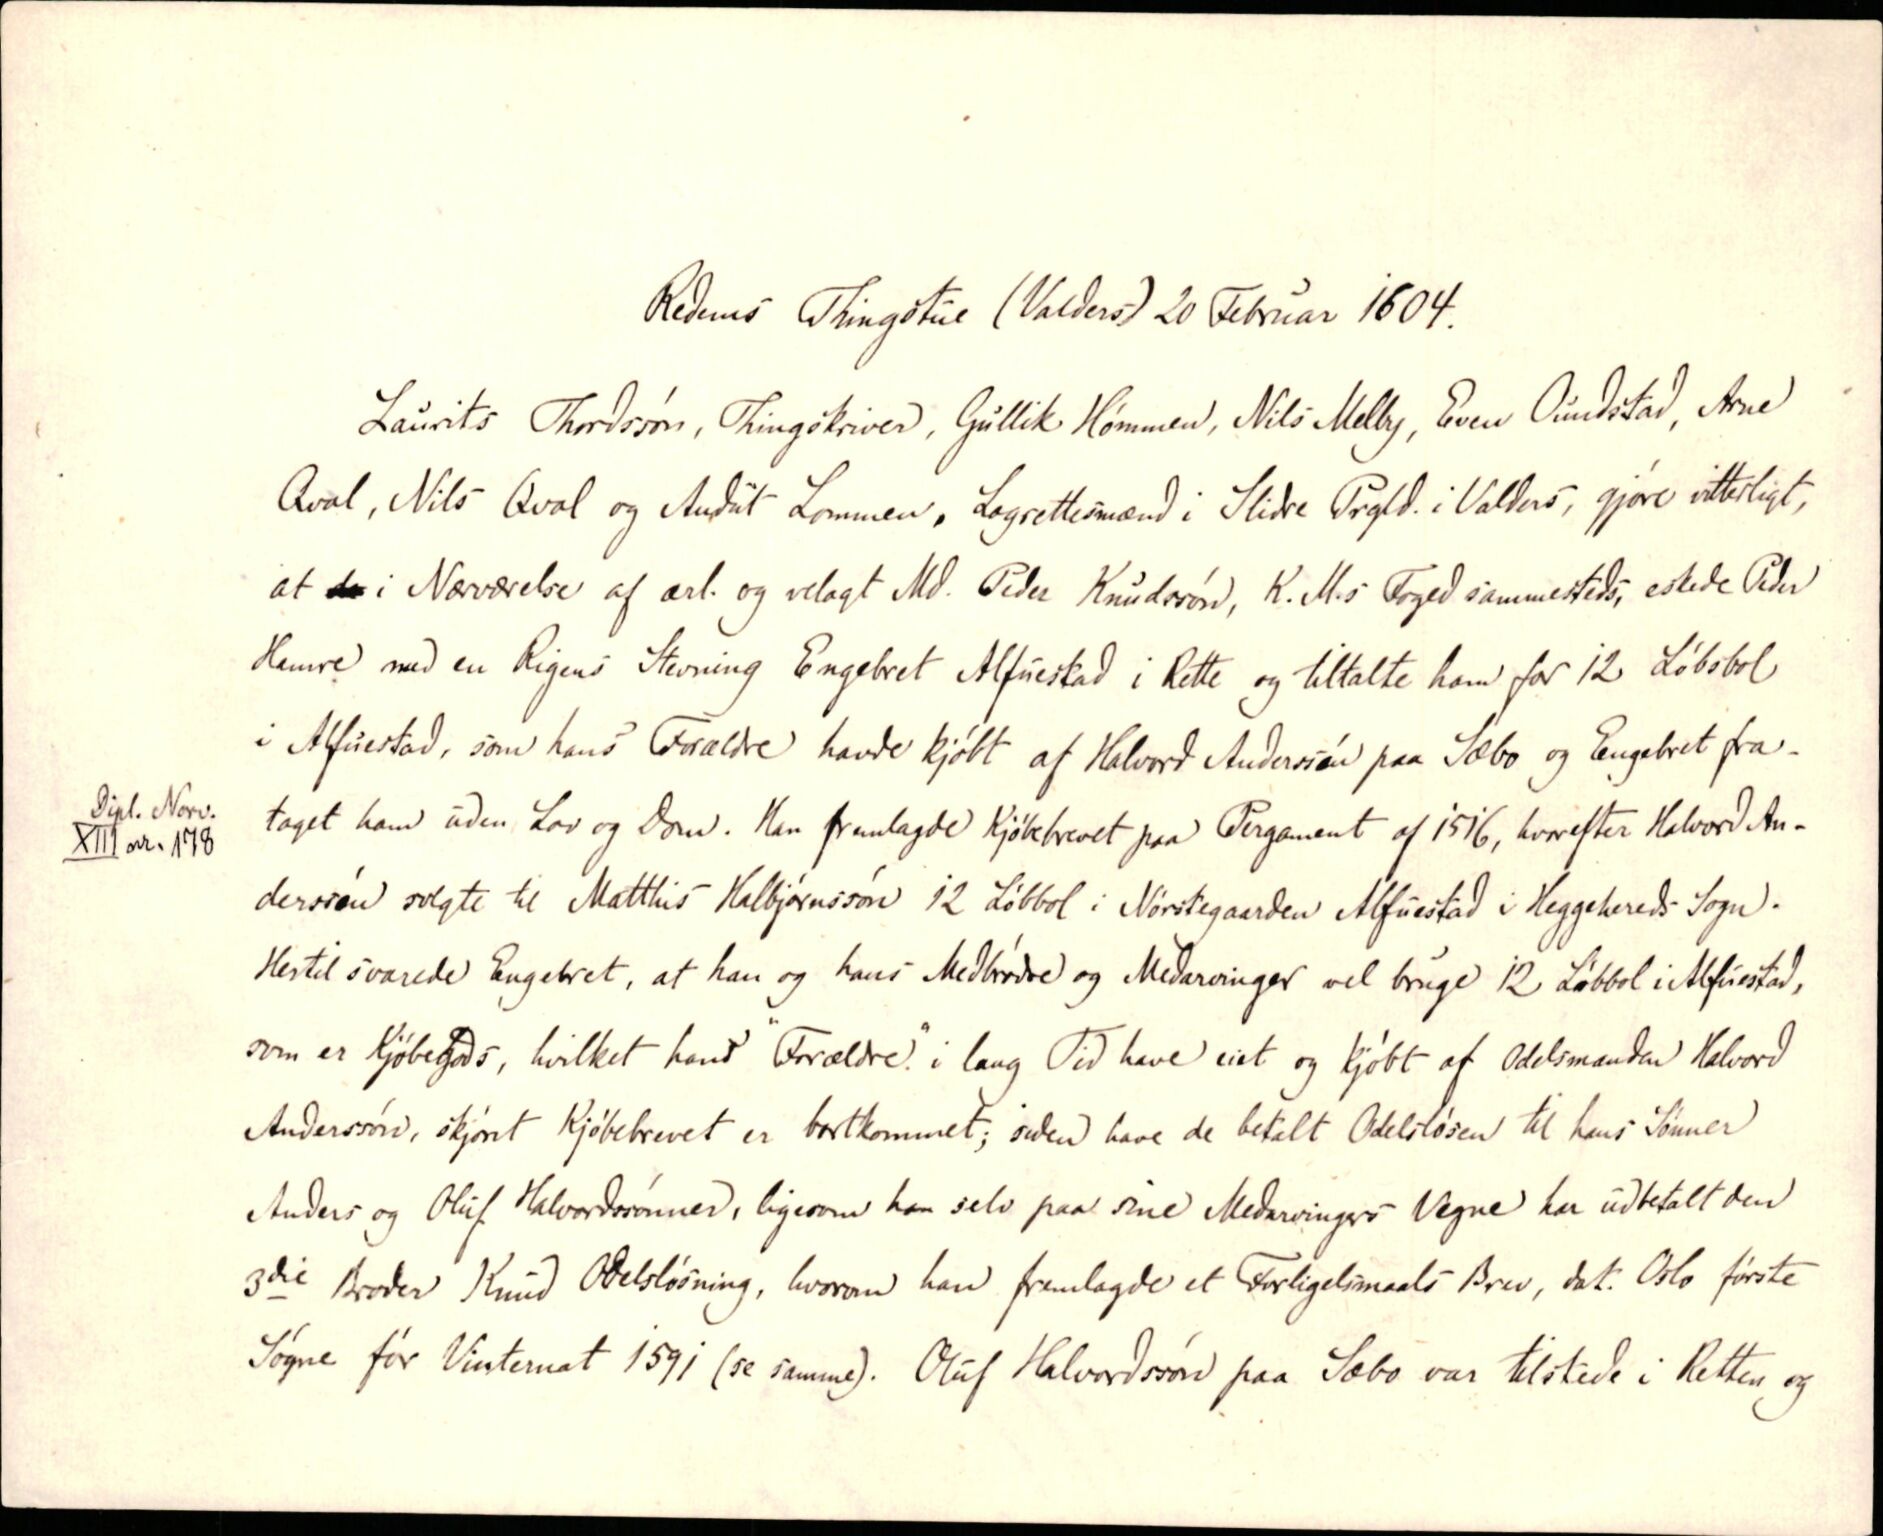 Redens Thingstue (Valders) 20 Februar 1604.
Laurits Thordssøn, Thingskriver, Gullik Hømmen, Nils Melby, Even Oundstad, Arne
Qval, Nils Qval og Andut Lommen, Lagrettesmænd i Slidre Prgld. i Valders, gjøre vitterligt,
at i Nærværelse af ærl. og velagt Md. Peder Knudssøn, K. M.s Foged sammesteds, eskede Peder
Hamre med en Rigens Stevning Engebret Alfuestad i Rette og tiltalte ham for 12 Løbsbol
i Alfuestad, som hans Forældre havde kjøbt af Halvord Anderssøn paa Sæbo og Engebret fra-
taget ham uden Lov og Dom. Han fremlagde Kjøbebrevet paa Pergament af 1516, hvorefter Halvord An-
Dipl. Norv.
XIII nr. 178
derssøn solgte til Matthis Halbjørnssøn 12 Løbbol i Nørstegaarden Alfuestad i Heggehereds Sogn.
Hertil svarede Engebret, at han og hans Medbrødre og Medarvinger vel bruge 12 Løbbol i Alfuestad,
som er KjøbeGods, hvilket hans "Forældre" i lang Tid have eiet og kjøbt af Odelsmanden Halvord
Anderssøn, skjønt Kjøbebrevet er bortkommet; siden have de betalt Odelsløsen til hans Sønner
Anders og Oluf Halvordssønner, ligesom han selv paa sine Medarvingers Vegne har udbetalt den
3die Broder Knud Odelsløsning, hvorom han fremlagde et Forligelsmaals Brev, dat. Oslo første
Søgne før Vinternat 1591 (se samme). Oluf Halvordssøn paa Sæbo var tilstede i Retten og